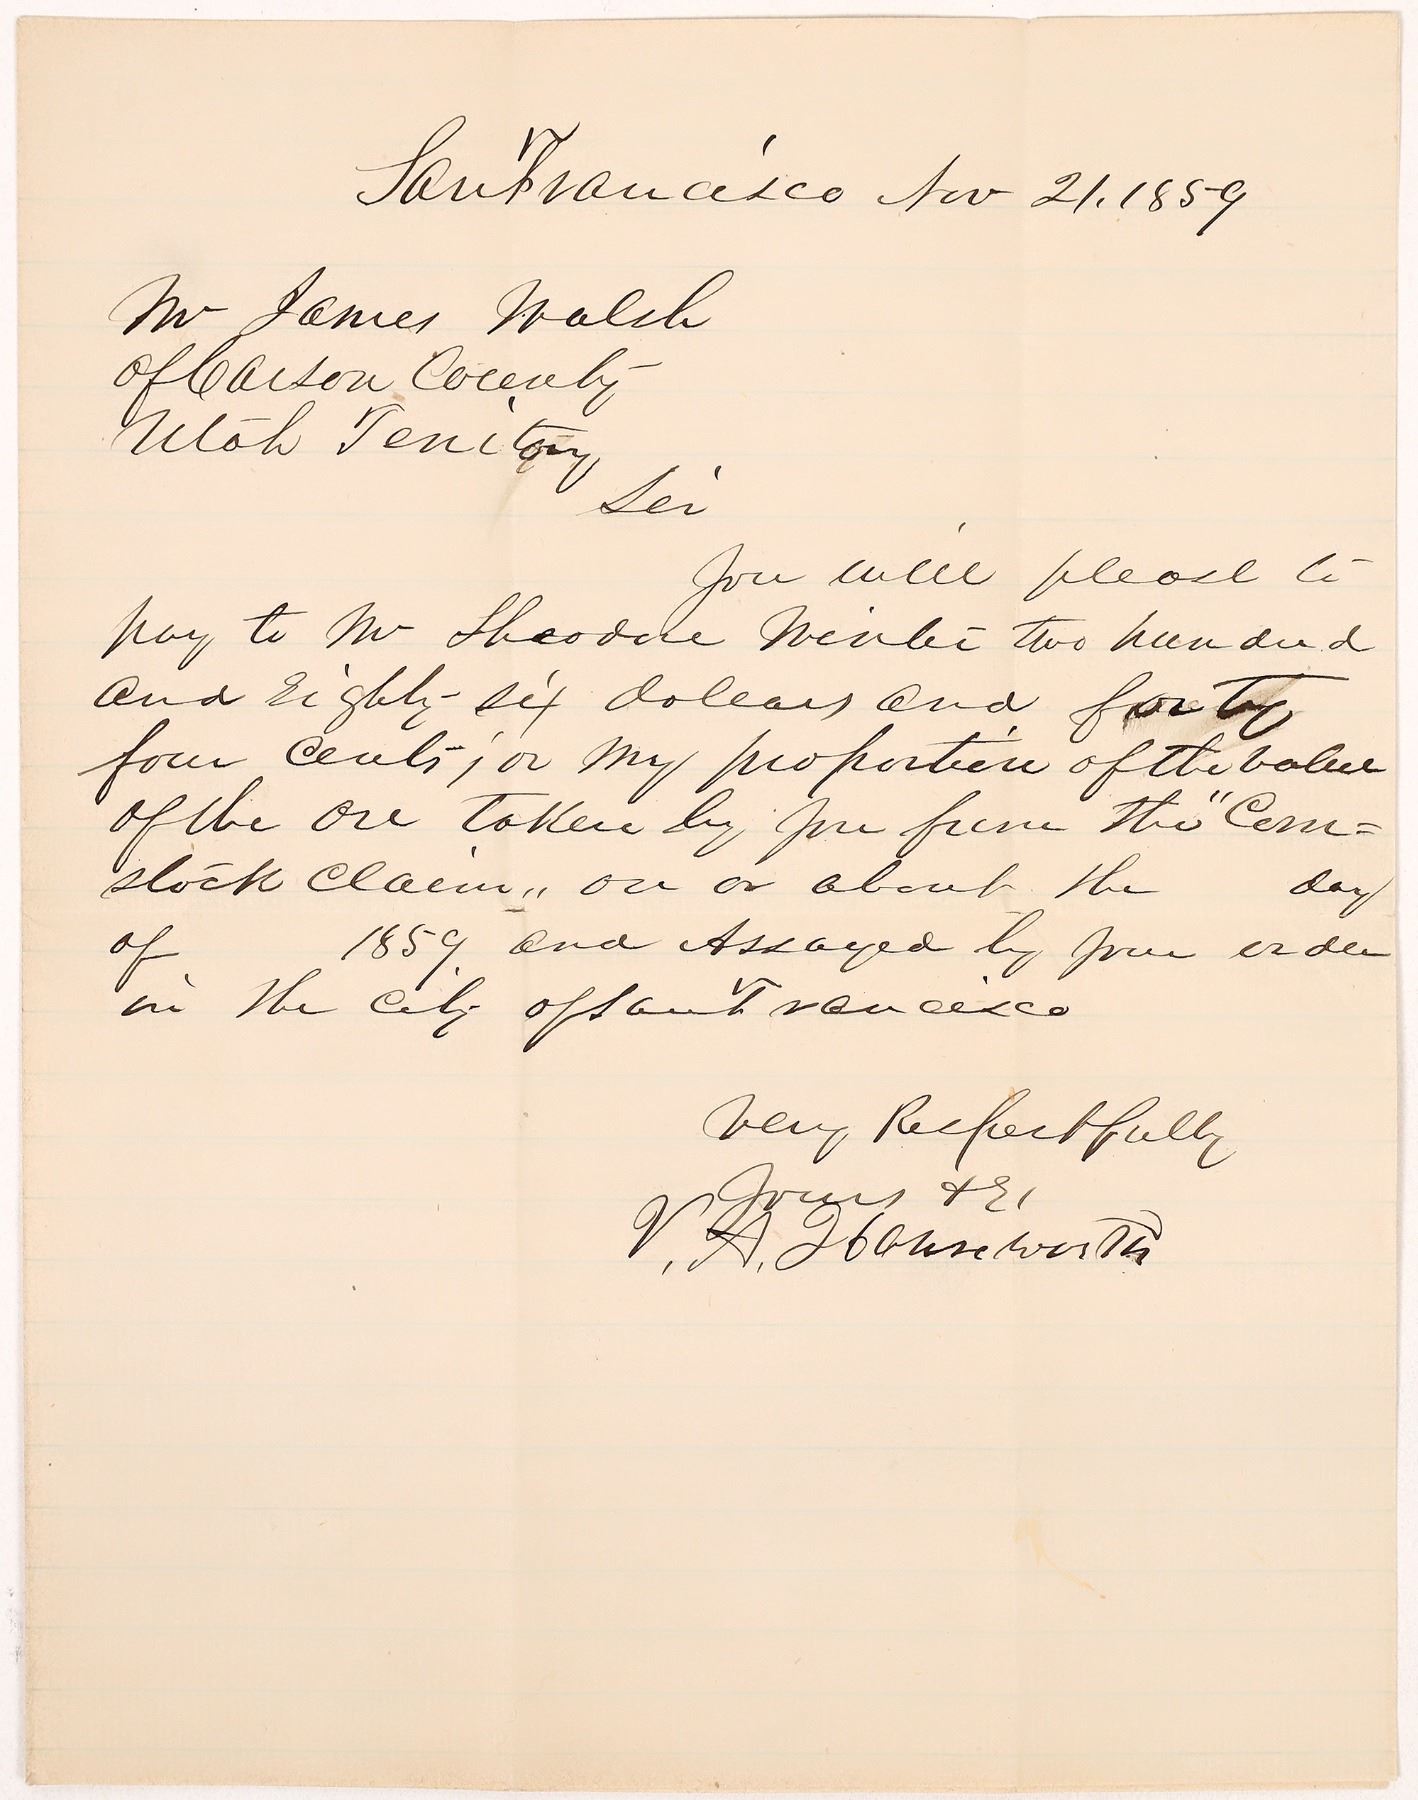 San Francisco Nov 21. 1859
Mr James Walsh
of Carson County
Utah Territory
Sir
You will please to
pay to Mr Theodore Winter two hundred
and Eighty six dollars and forty
four cents; or my proportion of the value
of the ore taken by you from the "Com=
stock claim„ on or about the day
of 1859 and Assayed by your order
in the city of San Francisco
Very Respectfully
Yours &c,
V. A. Houseworth